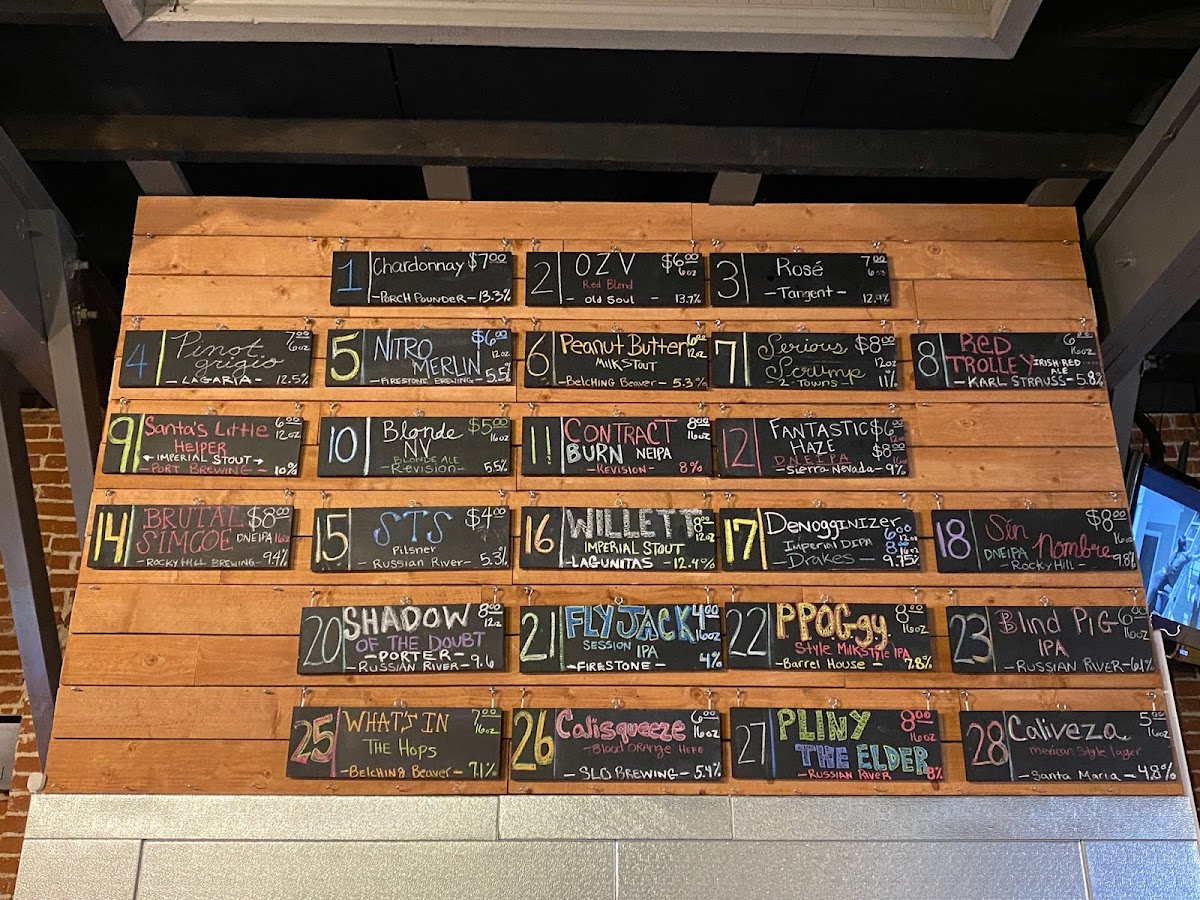 1 Chardonnay $7.00
- Porch Pounder - 13.3%
2 OZV $6.00
Red Blend 6oz
- Old Soul - 13.7%
3 Rosé 7.00
6oz
- Tangent - 12.9%
4 Pinot 7.00
grigio 6oz
- LAGARIA - 12.5%
5 NITRO $6.00
MERLIN 12oz
- FIRESTONE BREWING - 5.5%
6 Peanut Butter 6.00
MILK STOUT 12oz
- Belching Beaver - 5.3%
7 Serious $8.00
Scrump 12oz
2 TOWNS 11%
8 RED 6.00
TROLLEY 16oz
IRISH RED ALE
- KARL STRAUSS - 5.8%
9 Santa's Little 6.00
HELPER 12oz
IMPERIAL STOUT
- PORT BREWING - 10%
10 Blonde $5.00
NV 16oz
BLONDE ALE
- Revision - 5.5%
11 CONTRACT 8.00
BURN NEIPA 16oz
- REVISION - 8%
12 FANTASTIC $6
HAZE 12oz
DNEIPA $8.00
- Sierra Nevada - 9%
14 BRUTAL $8.00
SIMCOE DNEIPA 16oz
- ROCKY HILL BREWING - 9.4%
15 STS $4.00
Pilsner 16oz
- Russian River - 5.3%
16 WILLETT 8.00
IMPERIAL STOUT 12oz
- LAGUNITAS - 12.4%
17 DENOGGINIZER 6.00
12oz
Imperial DIPA 8.00
16oz
- Drakes - 9.75%
18 Sin $8.00
DNEIPA Nombre 16oz
- ROCKY HILL - 9.8%
20 SHADOW 8.00
OF THE DOUBT 12oz
- PORTER -
- RUSSIAN RIVER - 9.6
21 FLYJACK 4.00
SESSION IPA 16oz
- FIRESTONE - 4%
22 PPOGgy 8.00
Style Milkstyle IPA 16oz
- Barrel House - 7.8%
23 Blind PIG 6.00
IPA 16oz
- RUSSIAN RIVER - 6.1%
25 WHAT'S IN 7.00
THE HOPS 16oz
- Belching Beaver - 7.1%
26 Calisqueeze 6.00
- Blood Orange HEFE 16oz
- SLO BREWING - 5.4%
27 PLINY 8.00
THE ELDER 16oz
- RUSSIAN RIVER 8%
28 Caliveza 5.00
mexican style lager 16oz
- Santa Maria - 4.8%